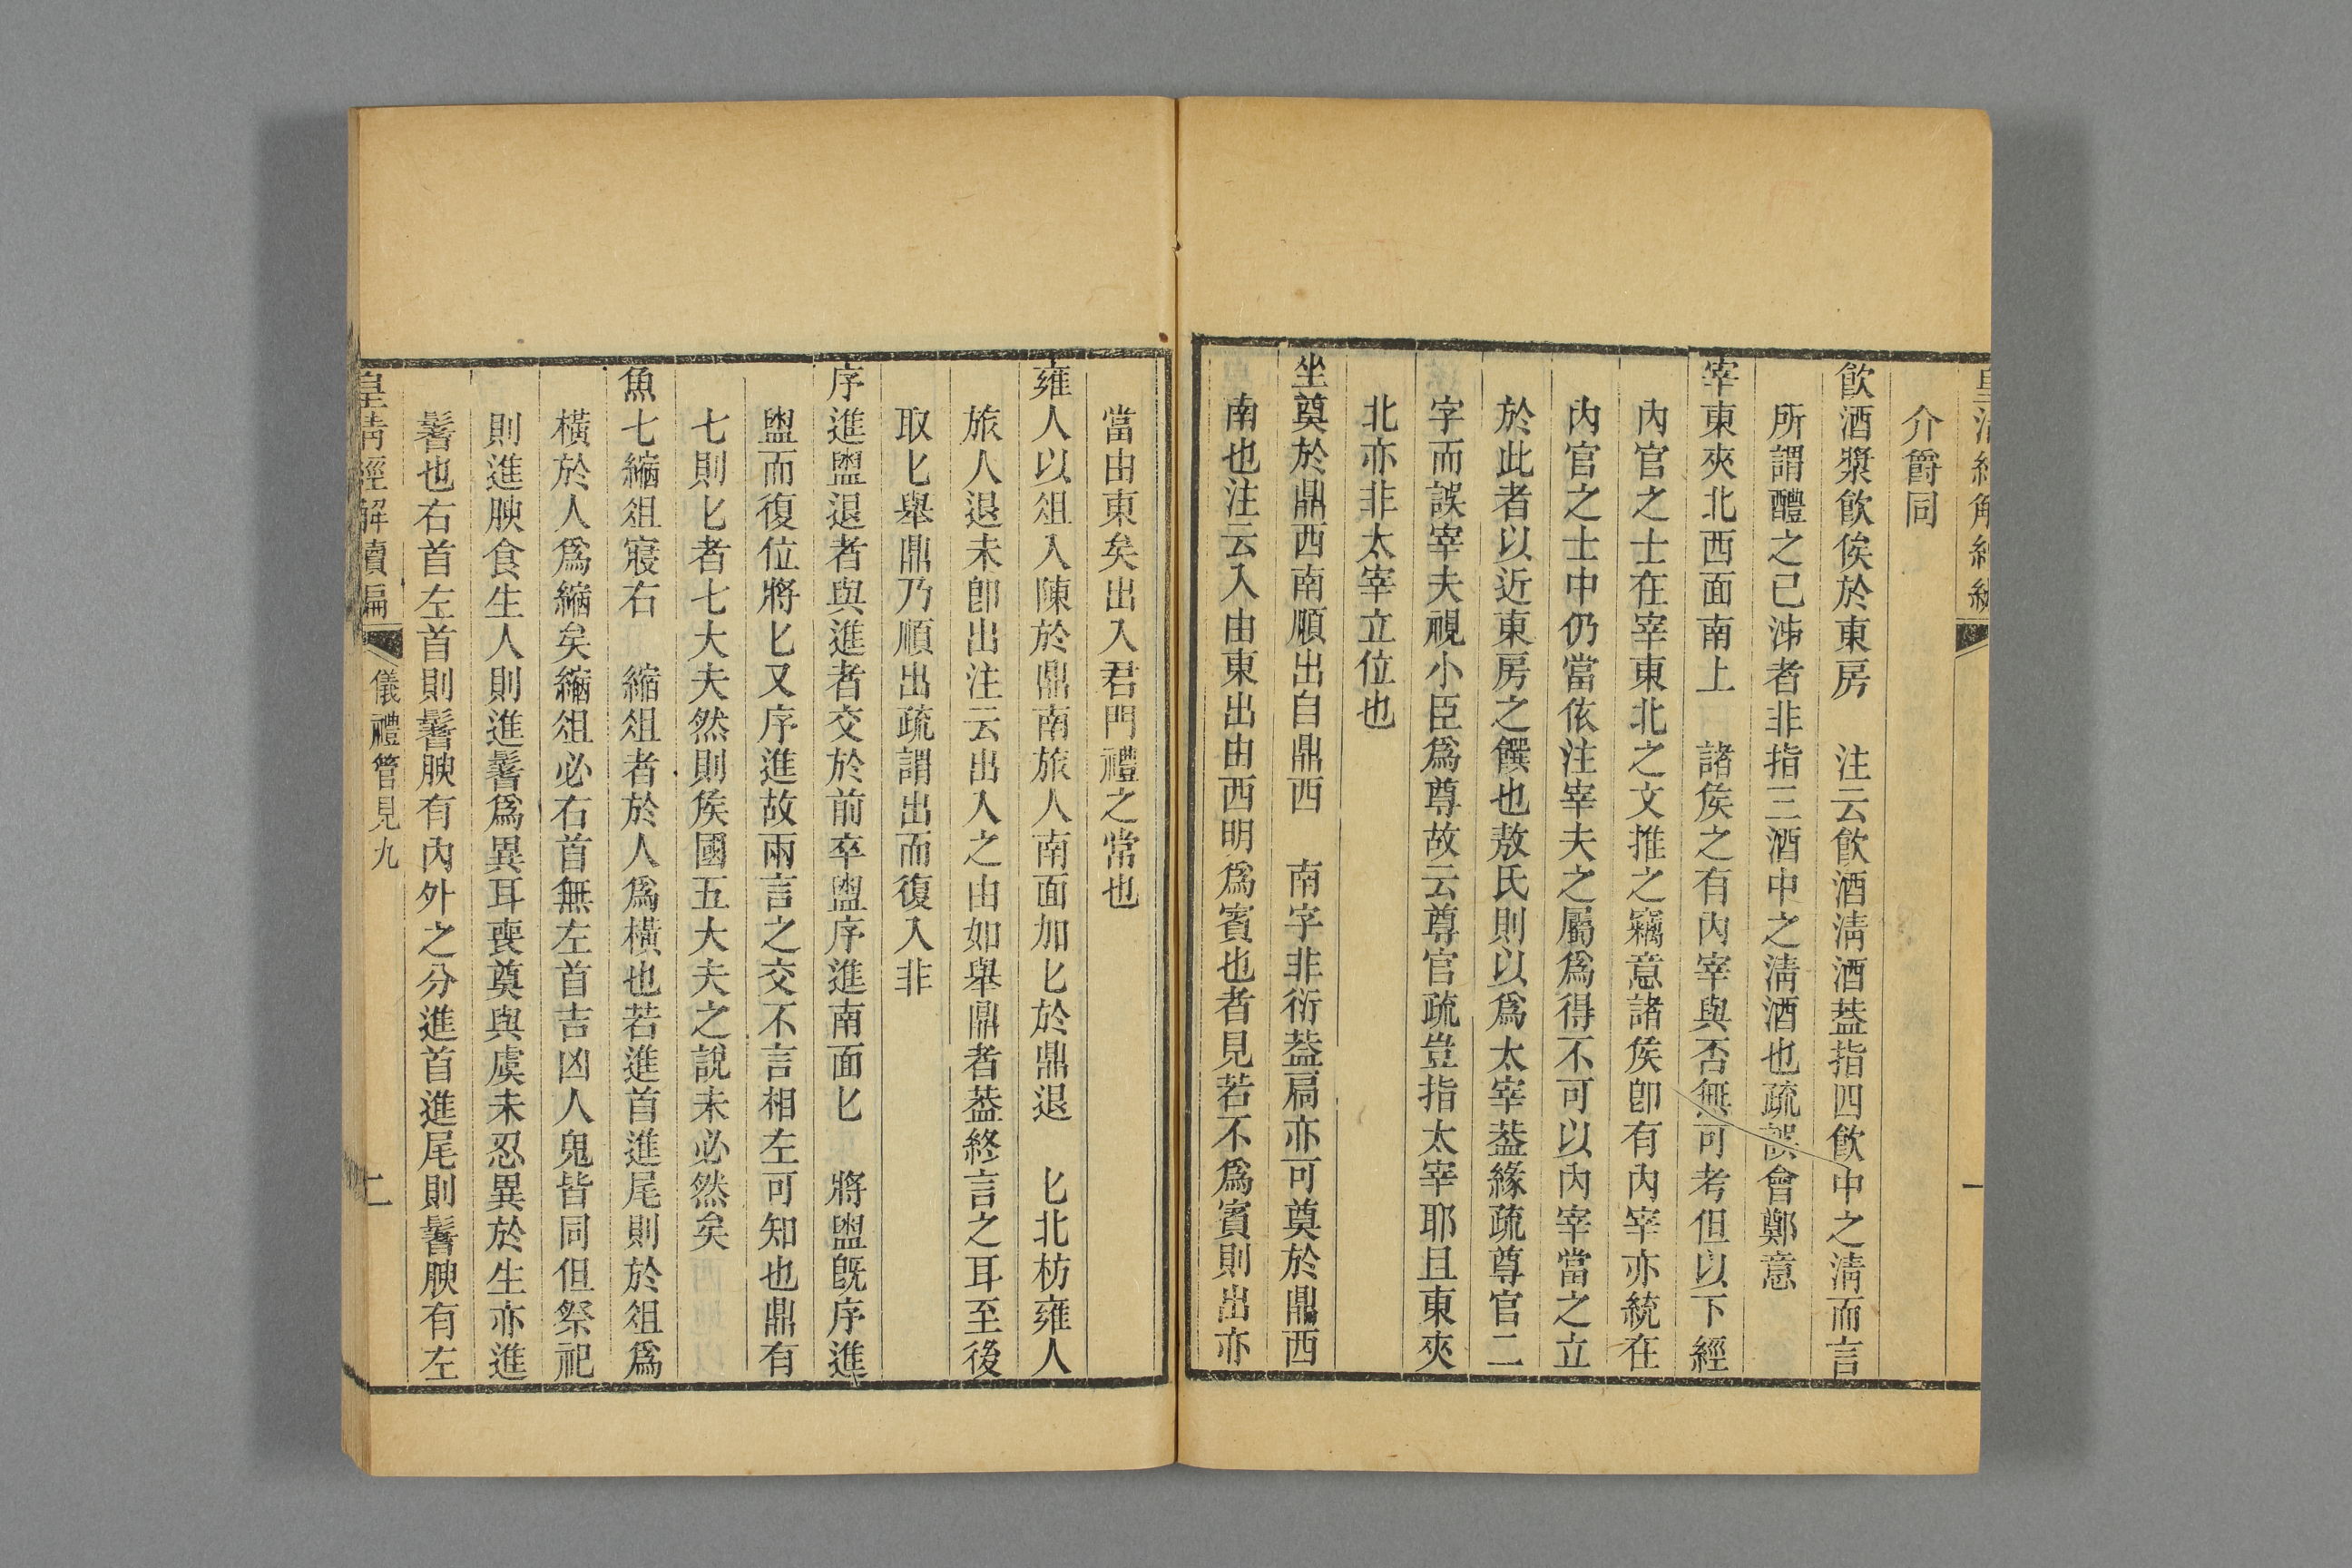 介爵同
飲酒漿飲俟於東房　注云飲酒淸酒葢指四飲中之淸而言
所謂醴之已泲者非指三酒中之淸酒也疏誤會鄭意
宰東夾北西面南上　諸侯之有內宰與否無可考但以下經
內官之士在宰東北之文推之竊意諸侯卽有內宰亦統在
內官之士中仍當依注宰夫之屬爲得不可以內宰當之立
於此者以近東房之饌也敖氏則以爲太宰葢緣疏尊官二
字而誤宰夫視小臣爲尊故云尊官疏豈指太宰耶且東夾
北亦非太宰立位也
坐奠於鼎西南順出自鼎西　南字非衍葢扃亦可奠於鼎西
南也注云入由東出由西明爲賓也者見若不爲賓則出亦
當由東矣出入君門禮之常也
雍人以俎入陳於鼎南旅人南面加匕於鼎退　匕北枋雍人
旅人退未卽出注云出入之由如舉鼎者葢終言之耳至後
取匕舉鼎乃順出疏謂出而復入非
序進盥退者與進者交於前卒盥序進南面匕　將盥旣序進
盥而復位將匕又序進故兩言之交不言相左可知也鼎有
七則匕者七大夫然則侯國五大夫之說未必然矣
魚七縮俎寢右　縮俎者於人爲橫也若進首進尾則於俎爲
橫於人爲縮矣縮俎必右首無左首吉凶人鬼皆同但祭祀
則進腴食生人則進鬐爲異耳喪奠與虞未忍異於生亦進
鬐也右首左首則鬐腴有內外之分進首進尾則鬐腴有左
皇淸經解續編　儀禮管見九　二